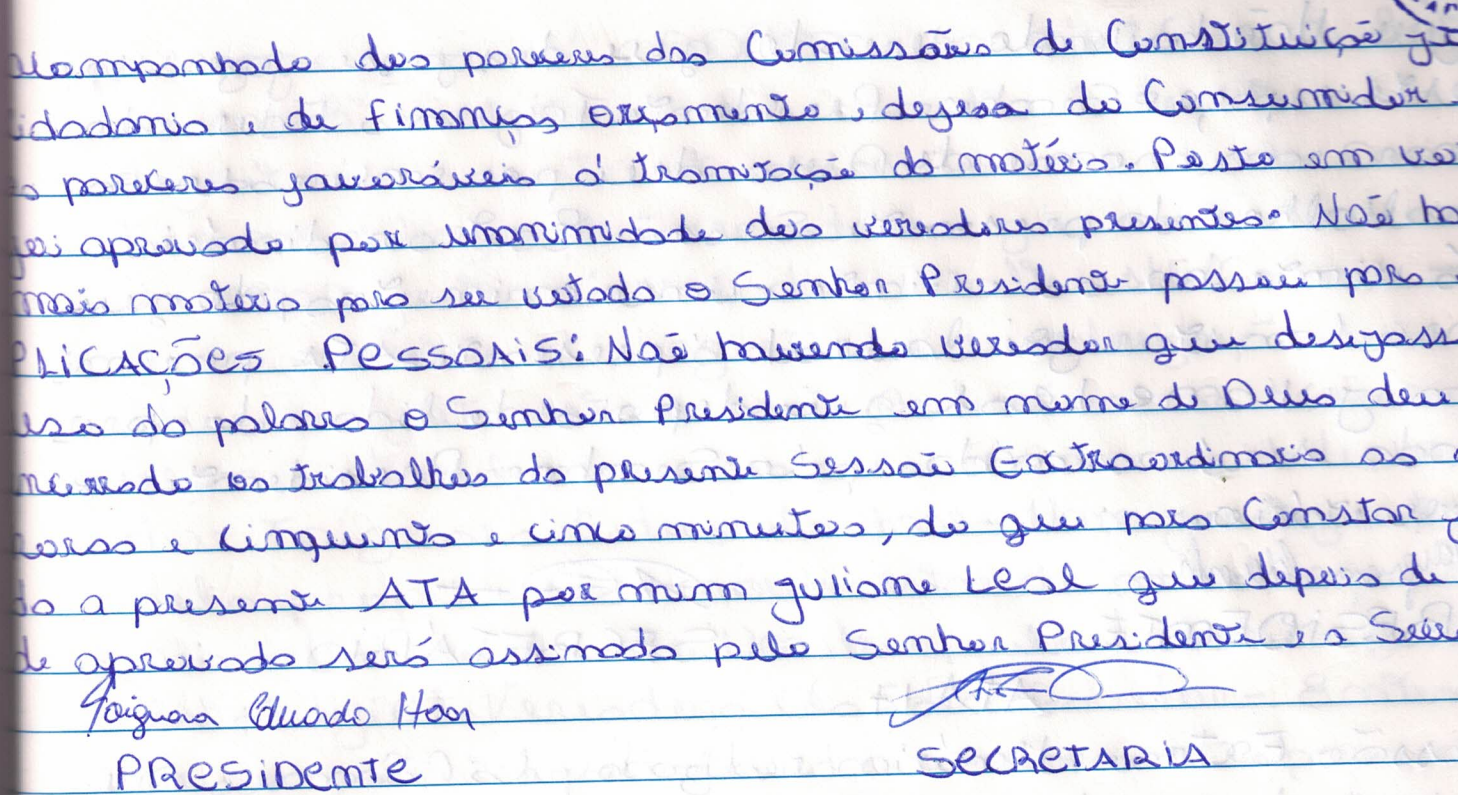 acompanhado dos pareceres das Comissões de Constituição
cidadania e de finanças, orçamento, defesa do Consumidor
pareceres favoráveis á tramitação da matéria. Posto em vo
foi aprovado por unanimidade dos vereadores presentes. Não ha
mais materia para ser votada o Senhor Presidente passou para
PLICAÇÕES PESSOAIS: Não havendo vereador que desejass
uso da palavra o Senhor Presidente em nome de Deus deu
ncerrado os trabalhos da presente Sessão Extraordinaria as
horas e cinquenta e cinco minutos, do que para Constar
da a presente ATA por mim juliane Leal que depois de
de aprovada será assinada pelo Senhor Presidente e a Secr
Taiguara Eduardo Haar
PRESIDENTE SECRETARIA